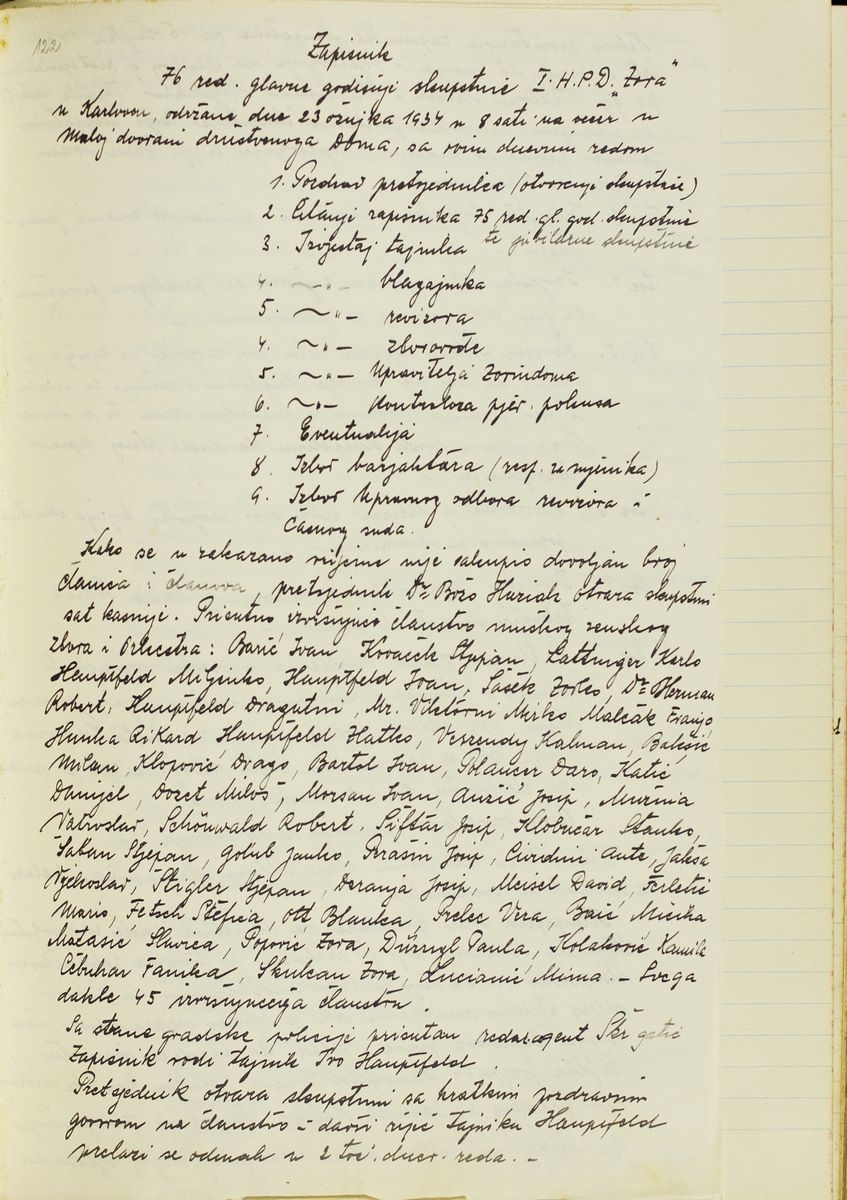 122
Zapisnik
76 red. glavne godišnje skupštine I. H. P. D. „Zora"
u Karlovcu, održane dne 23 ožujka 1934 u 8 sati na večer u
maloj dvorani društvenoga Doma, sa ovim dnevnim redom
1. Pozdrav pretsjednika (otvorenje skupštine)
2. Čitanje zapisnika 75 red. gl. god. skupštine
te jubilarne skupštine
3. Izvještaj tajnika
4. — „ — blagajnika
5. — „ — revizora
4. — „ — zborovođe
5. — „ — Upravitelja Zorindoma
6. — „ — Kontrolora pjev. pokusa
7. Eventualija
8. Izbor barjaktara (resp. zamjenika)
9. Izbor Upravnog odbora revizora i
Časnog suda.
Kako se u zakazano vrijeme nije sakupio dovoljan broj
članica i članova, pretsjednik Dr Božo Huzjak otvara skupštinu
sat kasnije. Prisutno izvršujuće članstvo muškog ženskog
zbora i Orkestra: Barić Ivan Kovaček Stjepan, Lattinger Karlo
Hauptfeld Miljenko, Hauptfeld Ivan, Sašek Zorko, Dr Herman
Robert, Hauptfeld Dragutin, Mr. Viktorin Mirko Malčak Franjo
Hunka Rikard Hauptfeld Zlatko, Veszendy Kalman, Balešić
Milan, Klopović Drago, Bartol Ivan, Polancer Daro, Katić
Danijel, Dozet Miloš, Morsan Ivan, Aužić Josip, Mužina
Vatroslav, Schönwald Robert. Siftar Josip, Klobučar Stanko,
Šaban Stjepan, Golub Janko, Perašin Josip, Cividini Ante, Jakša
Vjekoslav, Štigler Stjepan, Deranja Josip, Meisel David, Ferletić
Mario, Fetsch Štefica, Ott Blanka, Prelec Vera, Baić Micika
Matasić Slavica, Popović Zora, Dürrigl Paula, Kolaković Kamila
Cebuhar Fanika, Skukan Zora, Lucianić Mima. — Svega
dakle 45 izvršujućega članstva.
Sa strane gradske policije prisutan redar. agent Škrgatić
Zapisnik vodi tajnik Ivo Hauptfeld.
Pretsjednik otvara skupštinu sa kratkim pozdravnim
govorom na članstvo i davši riječ tajniku Hauptfeld
prelazi se odmah u 2 toč. dnev. reda. —